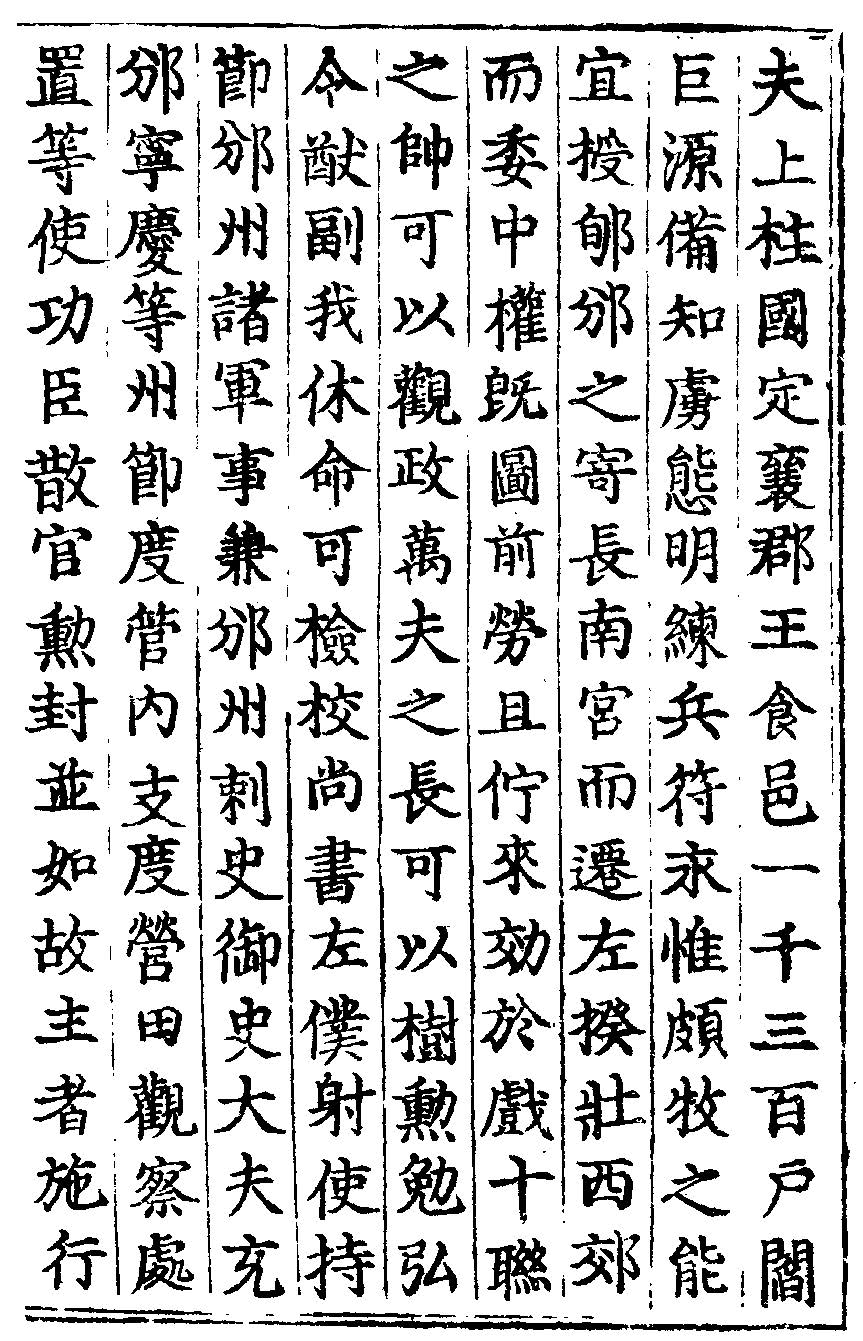 夫上柱國定襄郡王食邑一千三百戶閻
巨源備知虜態明練兵符永惟頗牧之能
宜授郇邠之寄長南宮而遷左揆壯西郊
而委中權既圖前勞且佇來効於戲十聯
之帥可以觀政萬夫之長可以樹勲勉弘
令猷副我休命可檢校尚書左僕射使持
節邠州諸軍事兼邠州刺史御史大夫充
邠寧慶等州節度管内支度營田觀察處
置等使功臣散官勲封並如故主者施行